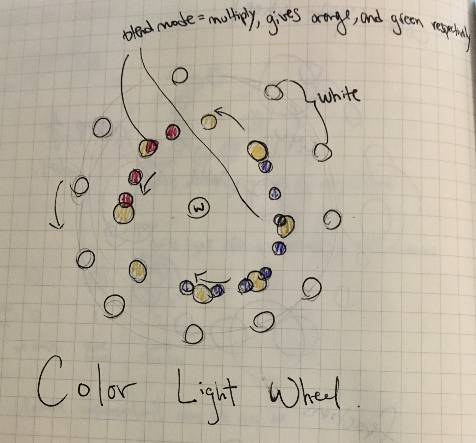 blend mode = multiply, gives orange, and green respectively
white
W
Color Light Wheel.